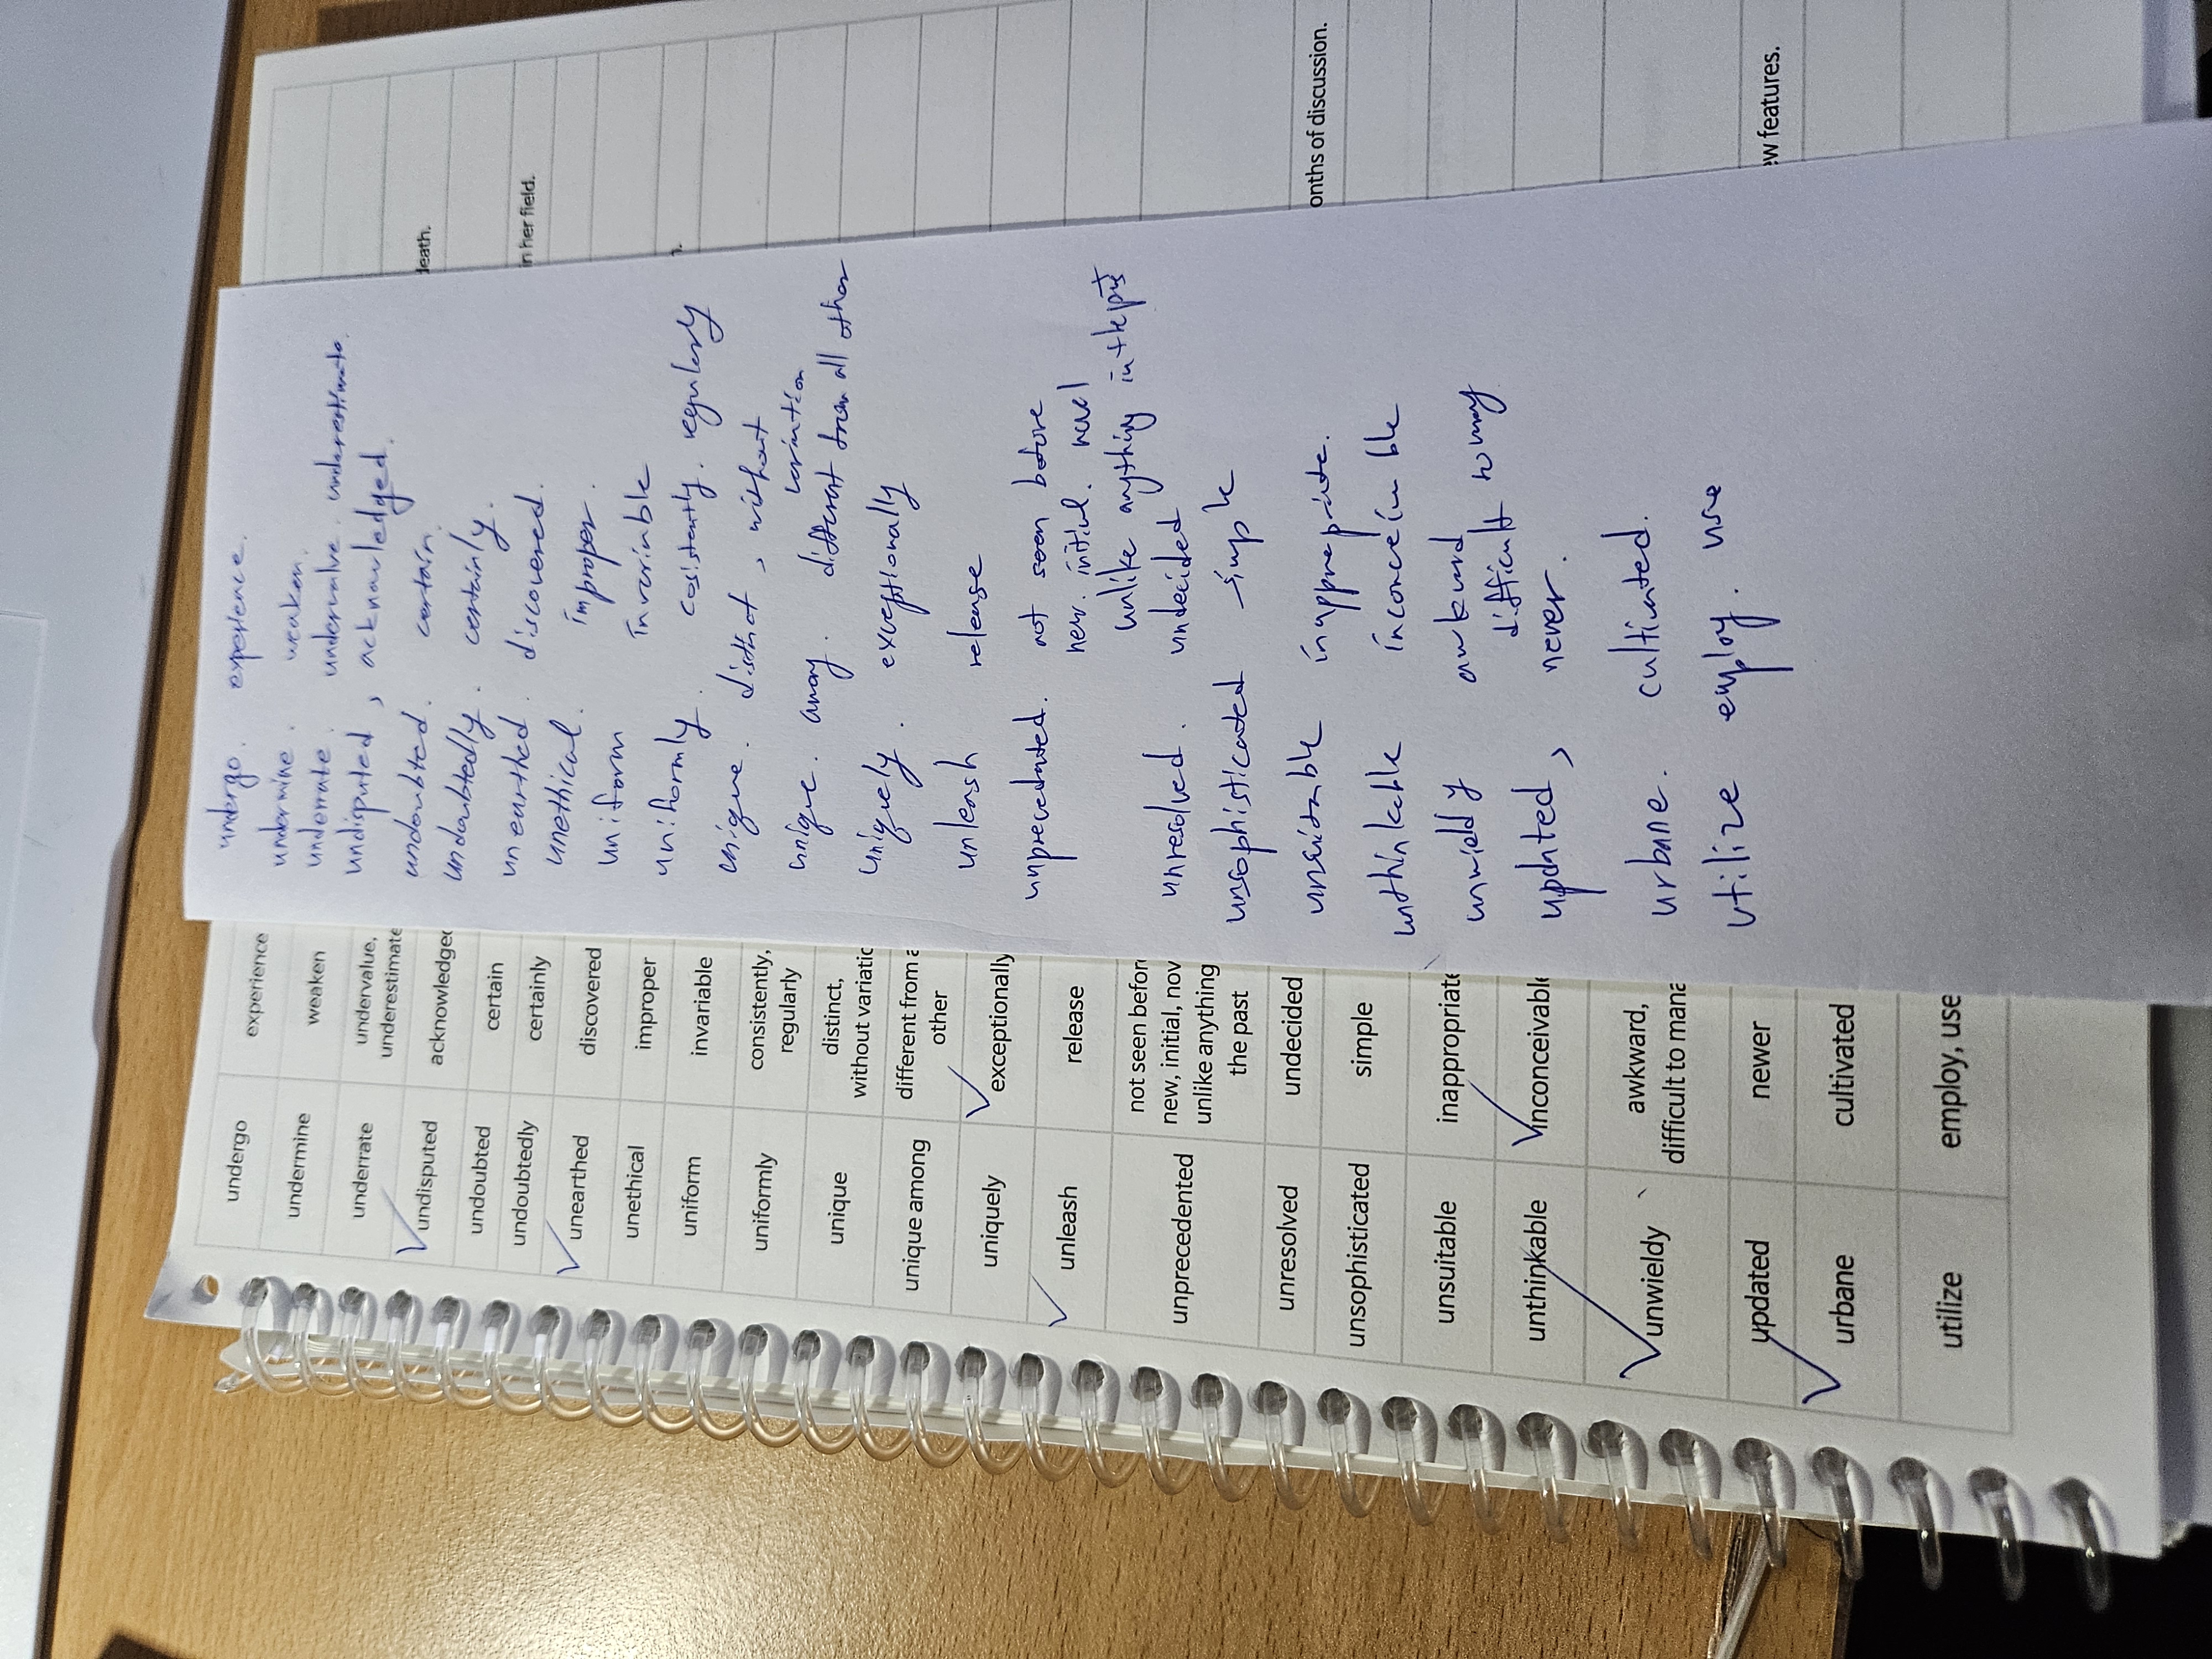 undergo experience
undermine weaken
underrate undervalue,
underestimate
undisputed acknowledged
undoubted certain
undoubtedly certainly
unearthed discovered
unethical improper
uniform invariable
uniformly consistently,
regularly
unique distinct,
without variatio
unique among different from a
other
uniquely exceptionally
unleash release
unprecedented not seen befor
new, initial, nov
unlike anything
the past
unresolved undecided
unsophisticated simple
unsuitable inappropriate
unthinkable inconceivable
unwieldy awkward,
difficult to mana
updated newer
urbane cultivated
utilize employ, use
undergo. experience.
undermine. weaken.
underrate. undervalve. underestimate.
undisputed, acknowledged.
undoubted. certain.
undoubtedly. certainly.
unearthed. discovered.
unethical. improper.
uniform invariable
uniformly. cosistently. regularly
unique. disthct, without
variation
unique. among. different from all other
uniquely. exceptionally
unleash release
unprecedented. not seen before
new. initial. novel
unlike anything in the past
unresolved. undecided
unsophisticated simple
unsuitable inappropriate.
unthinkable inconceivable
unwieldy awkward
difficult to
updated, newer.
urbane. cultivated.
utilize employ. use
death.
in her field.
n.
onths of discussion.
ew features.